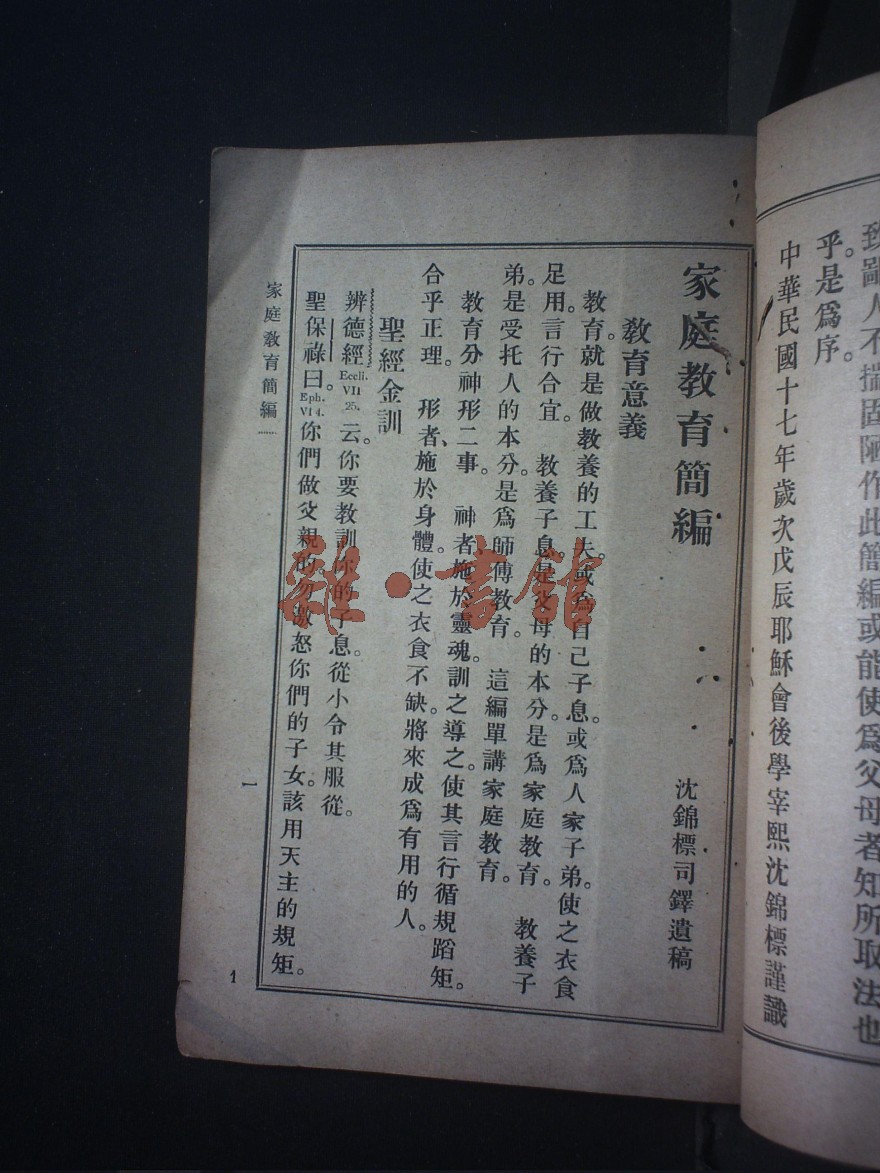 致鄙人不揣固陋作此簡編或能使爲父母者知所取法也
乎。是爲序。
中華民國十七年歲次戊辰耶穌會後學宰熙沈錦標謹識
家庭教育簡編
沈錦標司鐸遺稿
教育意義
教育。就是做教養的工夫。或爲自己子息。或爲人家子弟。使之衣食
足用。言行合宜。教養子息。是父母的本分。是爲家庭教育。教養子
弟。是受托人的本分。是爲師傅教育。這編單講家庭教育。
教育分神形二事。神者、施於靈魂。訓之導之。使其言行循規蹈矩。
合乎正理。形者、施於身體。使之衣食不缺。將來成爲有用的人。
聖經金訓
辨德經Eccli. VII 25.云。你要教訓你的子息。從小令其服從。
聖保祿曰。Eph. VI 4.你們做父親的。勿激怒你們的子女。該用天主的規矩。
家庭教育簡編
一
1
雜·書館